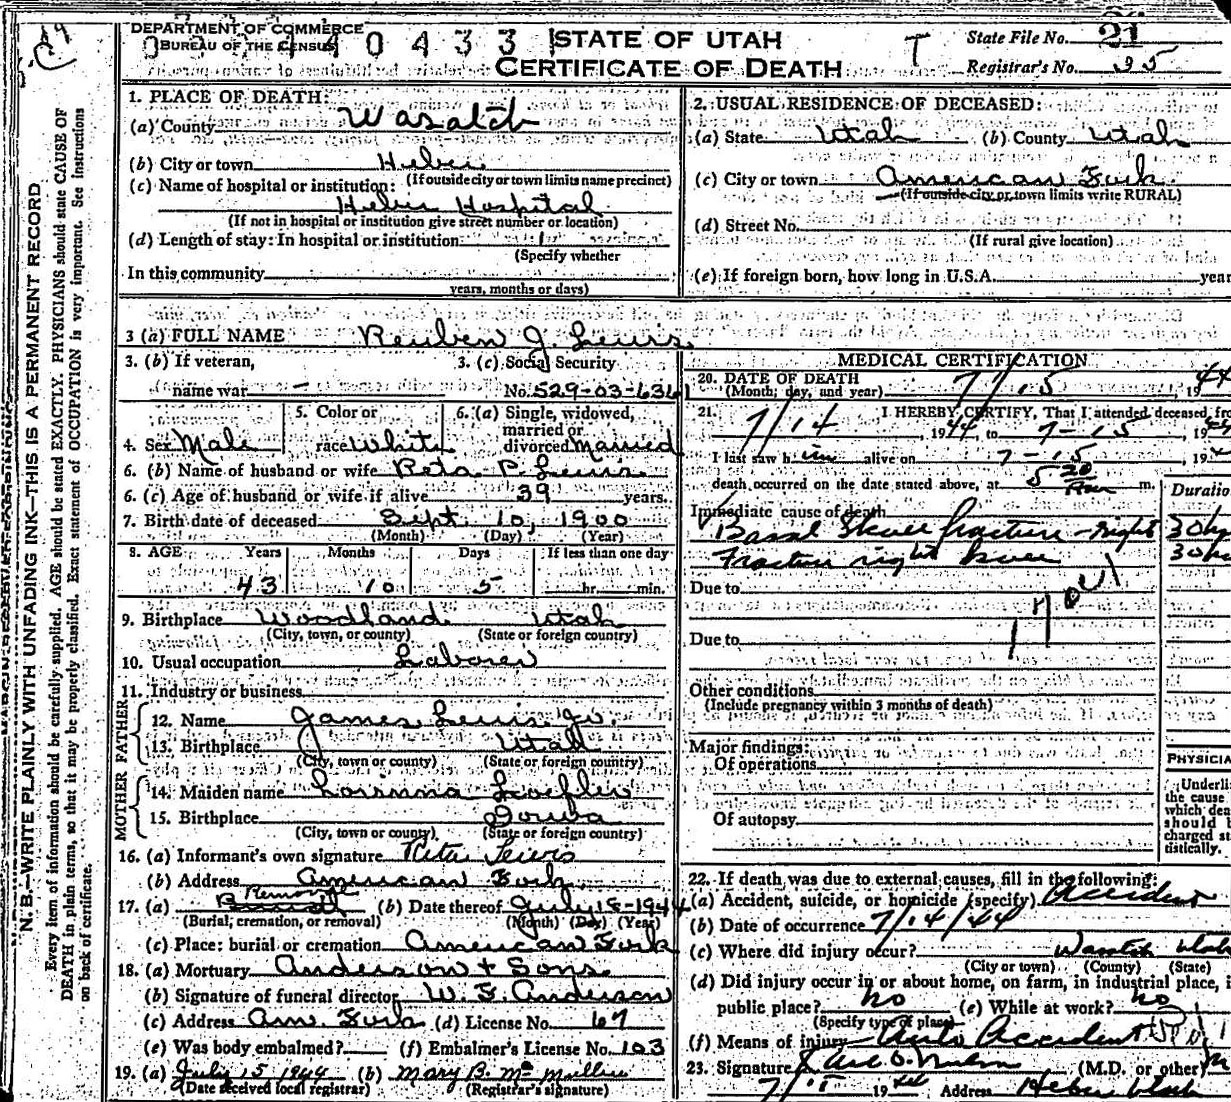 DEPARTMENT OF COMMERCE
BUREAU OF THE CENSUS
0433
STATE OF UTAH
CERTIFICATE OF DEATH
T
State File No. 21
Registrar's No. 35
N. B.—WRITE PLAINLY WITH UNFADING INK—THIS IS A PERMANENT RECORD
Every item of information should be carefully supplied. AGE should be stated EXACTLY. PHYSICIANS should state CAUSE OF
DEATH in plain terms, so that it may be properly classified. Exact statement of OCCUPATION is very important. See Instructions
on back of certificate.
1. PLACE OF DEATH:
(a) County Wasatch
(b) City or town Heber
(If outside city or town limits name precinct)
(c) Name of hospital or institution:
Heber Hospital
(If not in hospital or institution give street number or location)
(d) Length of stay: In hospital or institution 1
(Specify whether
In this community
years, months or days)
2. USUAL RESIDENCE OF DECEASED:
(a) State Utah (b) County Utah
(c) City or town American Fork
(If outside city or town limits write RURAL)
(d) Street No.
(If rural give location)
(e) If foreign born, how long in U.S.A. year
3 (a) FULL NAME Reuben J. Lewis
3. (b) If veteran,
name war –
3. (c) Social Security
No. 529-03-6
4. Sex Male
5. Color or
race White
6. (a) Single, widowed,
married or
divorced Married
6. (b) Name of husband or wife Reta P. Lewis
6. (c) Age of husband or wife if alive 39 years.
7. Birth date of deceased Sept. 10, 1900
(Month) (Day) (Year)
8. AGE Years Months Days If less than one day
43 10 5 hr. min.
9. Birthplace Woodland Utah
(City, town, or county) (State or foreign country)
10. Usual occupation Laborer
11. Industry or business
FATHER
12. Name James Lewis Jr.
13. Birthplace Utah
(City, town or county) (State or foreign country)
MOTHER
14. Maiden name
15. Birthplace Iowa
(City, town or county) (State or foreign country)
16. (a) Informant's own signature Reta Lewis
(b) Address American Fork
17. (a) Removal (b) Date thereof July 18-1944
(Burial, cremation, or removal) (Month) (Day) (Year)
(c) Place: burial or cremation American Fork
18. (a) Mortuary Anderson & Sons
(b) Signature of funeral director W. F. Anderson
(c) Address Am. Fork (d) License No. 67
(e) Was body embalmed? (f) Embalmer's License No. 103
19. (a) July 15 1944 (b) Mary B.
(Date received local registrar) (Registrar's signature)
MEDICAL CERTIFICATION
20. DATE OF DEATH
(Month, day, and year) 7/15, 1944
21. I HEREBY CERTIFY, That I attended deceased fro
7/14, 1944, to 7-15, 19
I last saw him alive on 7-15, 19
death occurred on the date stated above, at 5 20 m.
Duratio
Immediate cause of death
Basal Skull fracture - right 30
Fracture right 30
Due to
Due to
Other conditions
(Include pregnancy within 3 months of death)
Major findings:
Of operations
Of autopsy
PHYSICIA
Underli
the cause
which dea
should b
charged st
tistically.
22. If death was due to external causes, fill in the following:
(a) Accident, suicide, or homicide (specify) Accident
(b) Date of occurrence 7/14/44
(c) Where did injury occur? Wasatch Utah
(City or town) (County) (State)
(d) Did injury occur in or about home, on farm, in industrial place, i
public place? no (e) While at work? no
(Specify type of place)
(f) Means of injury Auto Accident
23. Signature (M.D. or other)
19 Address Heber Utah